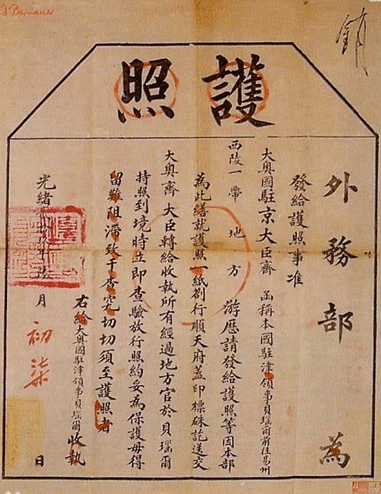 銷
護照
外務部 為
發給護照事准
大奧國駐京大臣齊 函稱本國駐津領事貝瑙爾前往易州
西陵一帶地方 游歷請發給護照等因本部
為此繕就護照一紙劄行順天府蓋印標硃訖送交
大奧齊大臣轉給收執所有經過地方官於貝瑙爾
持照到境時立即查驗放行照約妥為保護毋得
留難阻滯致干查究切切須至護照者
右給大奧國駐津領事貝瑙爾收執
光緒 月初柒日